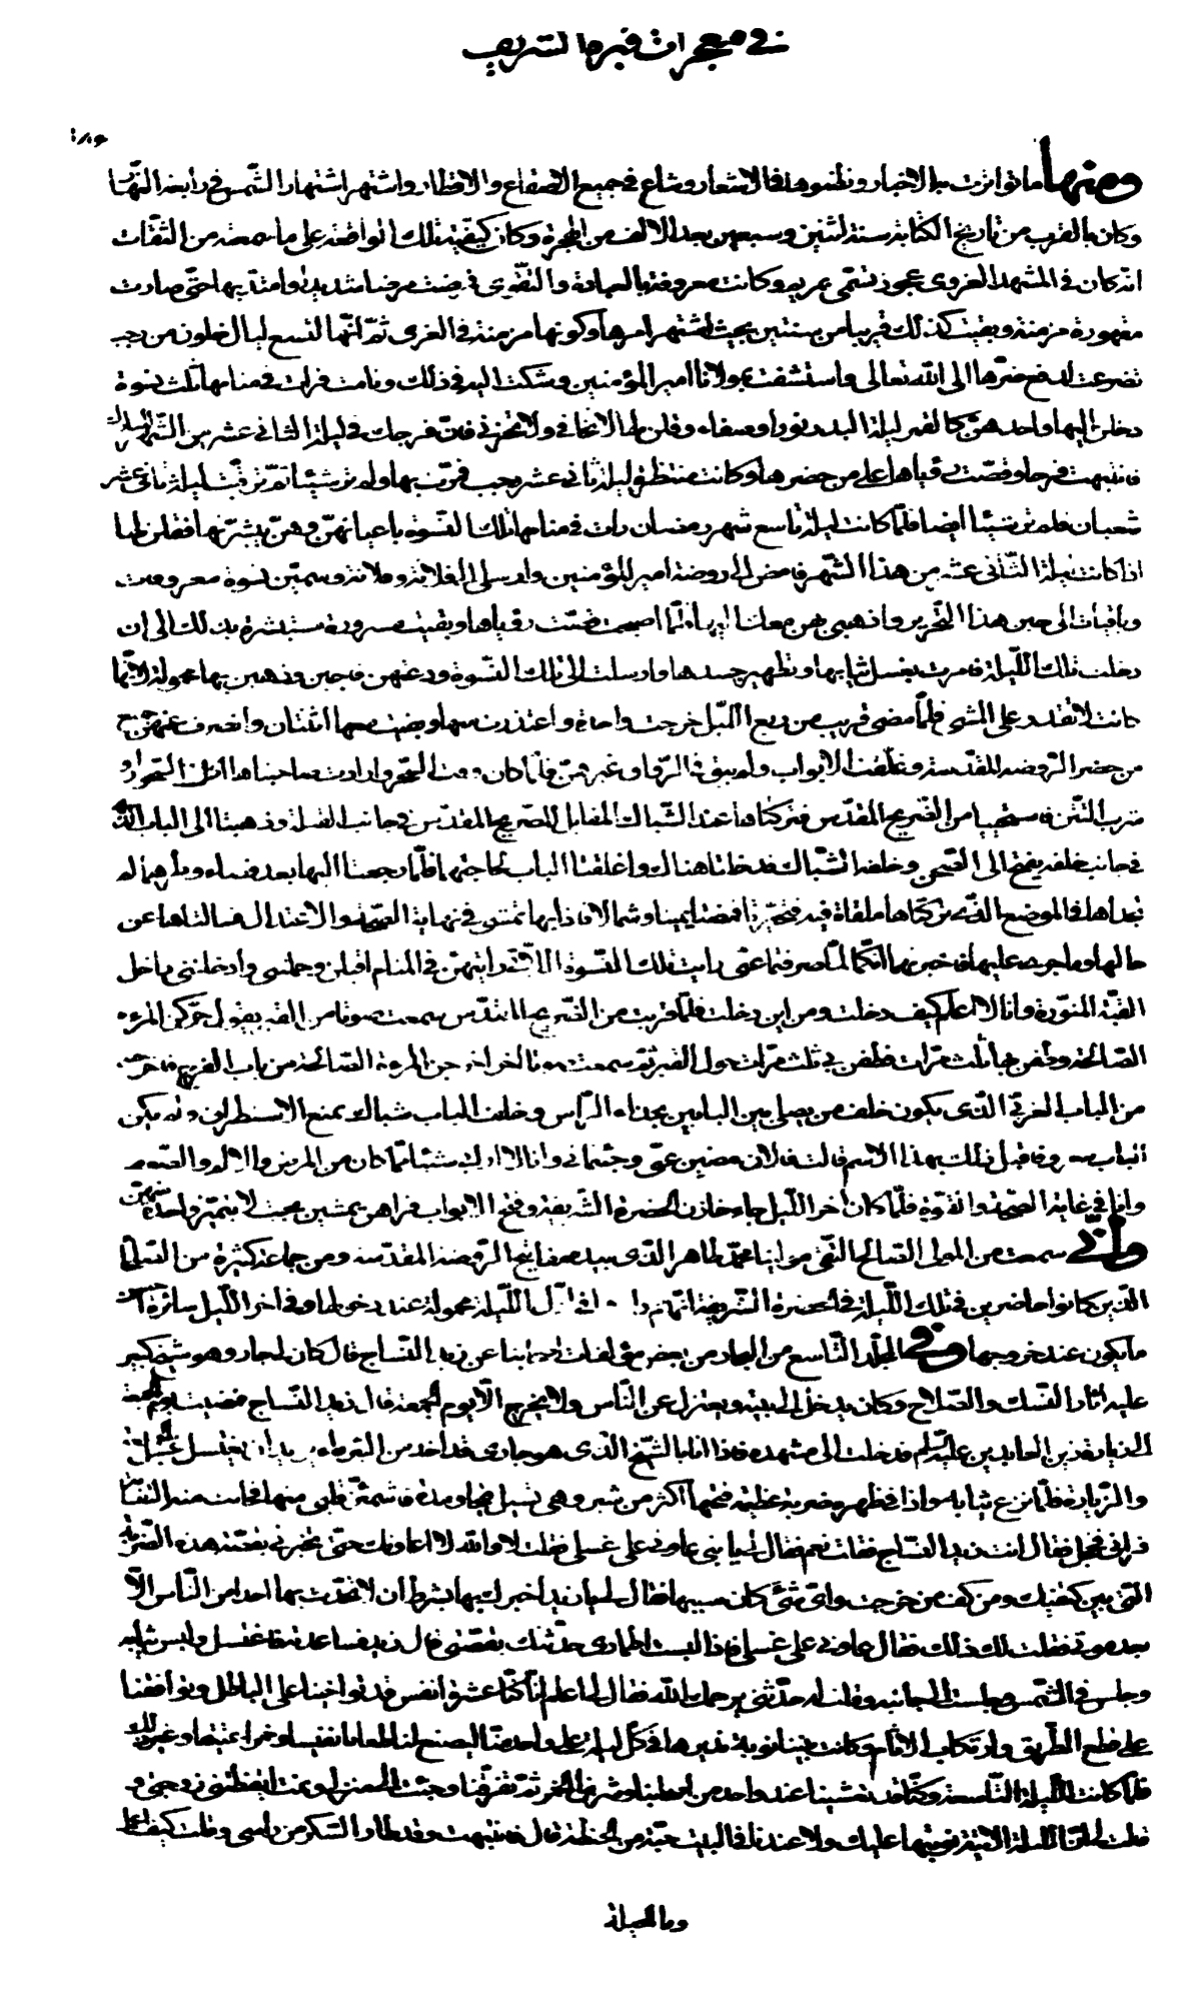 في معجزات قبره الشريف
ومنها ما تواترت به الاخبار ونظموها في الاشعار وشاع في جميع الاصقاع والاقطار واشتهر اشتهار الشّمس في رابعة النّهار
وكان بالقرب من تاريخ الكتابة سنة اثنتين وسبعين بعد الالف من الهجرة وكان كيفيّة تلك الواقعة على ما سمعته من الثّقات
انّه كان في المشهد الغروي عجوز تسمّى بمريم وكانت معروفة بالعبادة والتّقوى فمرضت مرضا شديدا وامتدّ بها حتّى صارت
مقعدة مزمنة وبقيت كذلك قريبا من سنتين بحيث اشتهر امرها وكونها مزمنة في الغري ثمّ انّها لتسع ليال خلون من رجب
تضرعت لدفع ضرّها الى اللّه تعالى واستشفعت بمولانا امير المؤمنين وشكت اليه في ذلك ونامت فرات في منامها ثلث نسوة
دخلن اليها واحدهنّ كالقمر ليلة البدر نورا وصفاء وقلن لها لا تخافي ولا تحزني فانّ فرجك في ليلة الثاني عشر من الشّهر المبارك
فانتبهت فرحا وقصّت رؤياها على من حضرها وكانت تنتظر ليلة ثاني عشر رجب فمرّت بها ولم تر شيئا ثمّ ترقّبت ليلة ثاني عشر
شعبان فلم تر شيئا ايضا فلمّا كانت ليلة تاسع شهر رمضان رات في منامها تلك النّسوة باعيانهنّ وهنّ يبشّرنها فقلن لها
اذا كانت ليلة الثّاني عشر من هذا الشّهر فامضي الى روضة امير المؤمنين وارسلي الى فلانة وفلانة وسمّين نسوة معروفات
وباقيات الى حين هذا التّحرير واذهبي بهنّ معك فلمّا اصبحت قصّت رؤياها وبقيت مسرورة مستبشرة بذلك الى ان
دخلت تلك اللّيلة فامرت بغسل ثيابها وتطهير جسدها وارسلت الى تلك النّسوة ودعتهنّ فاجبن وذهبن بها محمولة لانّها
كانت لا تقدر على المشي فلمّا مضى قريب من ربع اللّيل خرجت واحدة واعتذرت منها وبقيت معها اثنتان وانصرف عنهنّ جميع
من حضر الرّوضة المقدّسة وغلّقت الابواب ولم يبق في الرّواق غيرهنّ فلمّا كان وقت السّحر وارادت صاحبتاها اكل السّحور او
شرب التّتن فاستحييا من الضّريح المقدّس فتركتاها عند الشّباك المقابل للضّريح المقدّس في جانب القبلة وذهبتا الى الباب الّذي
في جانب خلفه يفتح الى الصّحن وخلفه الشّباك فدخلتا هناك واغلقتا الباب لحاجتهما فلمّا رجعتا اليها بعد قضاء وطرهما لم
تجداها في الموضع الّذي تركتاها ملقاة فيه فتحيّرتا فمضتا يمينا وشمالا فاذا بها تمشي في نهاية الصّحّة والاعتدال فسالتاها عن
حالها وما جرى عليها فاخبرتهما انّكما لمّا انصرفتما عنّي رايت تلك النّسوة اللّاتي رايتهنّ في المنام اقبلن وحملنني وادخلنني داخل
القبّة المنوّرة وانا لا اعلم كيف دخلت ومن اين دخلت فلمّا قربت من الضّريح المقدّس سمعت صوتا من القبر يقول حرّكن المرءة
الصّالحة وطفن بها ثلث مرّات فطفن بي ثلث مرّات حول القبر ثمّ سمعت صوتا اخر اخرجن المرءة الصّالحة من باب الفرج فاخرجنني
من الباب الغربيّ الّذي يكون خلف من يصلّي بين البابين بحذاء الرّاس وخلف الباب شباك يمنع الاستطراق ولم يكن
الباب معروفا قبل ذلك بهذا الاسم قالت فالان مضين عنّي وجئتماني وانا لا ارى بي شيئا ممّا كان من المرض والالم والضّعف
وانا في غاية الصّحّة والقوّة فلمّا كان اخر اللّيل جاء خازن الحضرة الشّريفة وفتح الابواب فراهنّ يمشين بحيث لا يتميّز واحدة منهنّ
وانّي سمعت من المولى الصّالح التّقي مولينا محمّد طاهر الّذي بيده مفاتيح الرّوضة المقدّسة ومن جماعة كثيرة من الصّلحاء
الّذين كانوا حاضرين في تلك اللّيلة في الحضرة الشّريفة انّهم راوها في اوّل اللّيلة محمولة عند دخولها وفي اخر اللّيل سائرة احسن
ما يكون عند خروجها وفي المجلّد التّاسع من البحار من بعض مؤلفات اصحابنا عن زيد النّساج قال كان لي جار وهو شيخ كبير
عليه اثار النّسك والصّلاح وكان يدخل الى بيته ويعتزل عن النّاس ولا يخرج الّا يوم الجمعة قال زيد النّساج فمضيت يوم الجمعة
الى زيارة زين العابدين عليه السّلم فدخلت الى مشهده فاذا انا بالشّيخ الّذي هو جاري قد اخذ من البئر ماء يريد ان يغتسل غسل الجمعة
والزّيارة فلمّا نزع ثيابه واذا في ظهره ضربة عظيمة فتحها اكثر من شبر وهي تسيل قيحا ومدّة فاشمئزّ قلبي منها فحانت منه التفاتة
فراني فخجل فقال لي انت زيد النّساج فقلت نعم فقال لي يا بني عاونّي على غسلي فقلت لا واللّه لا اعاونك حتّى تخبرني بقصّة هذه الضّربة
التي بين كتفيك ومن كفّ من خرجت وايّ شيء كان سببها فقال لي يا زيد اخبرك بها بشرط ان لا تحدّث بها احدا من النّاس الّا
بعد موتي فقلت لك ذلك فقال عاونّي على غسلي فاذا لبست اطماري حدّثتك بقصّتي قال زيد فساعدته فاغتسل ولبس ثيابه
وجلس في الشّمس وجلست الى جانبه وقلت له حدّثني يرحمك اللّه فقال لي اعلم انّا كنّا عشرة انفس قد تواخينا على الباطل وتوافقنا
على قطع الطّريق وارتكاب الاثام وكانت بيننا نوبة نديرها في كلّ ليلة على واحد منّا ليصنع لنا طعاما نفيسا وخمرا عتيقا وغير ذلك
فلمّا كانت اللّيلة التّاسعة وكنّا قد تعشّينا عند واحد من اصحابنا وشربنا الخمر ثمّ تفرّقنا وجئت الى منزلي ونمت ايقظتني زوجتي و
قالت لي انّ اللّيلة الاتية نوبتها عليك ولا عندنا في البيت حبّة من الحنطة قال فانتبهت وقد طار السّكر من راسي وقلت كيف اعمل
وما الحيلة